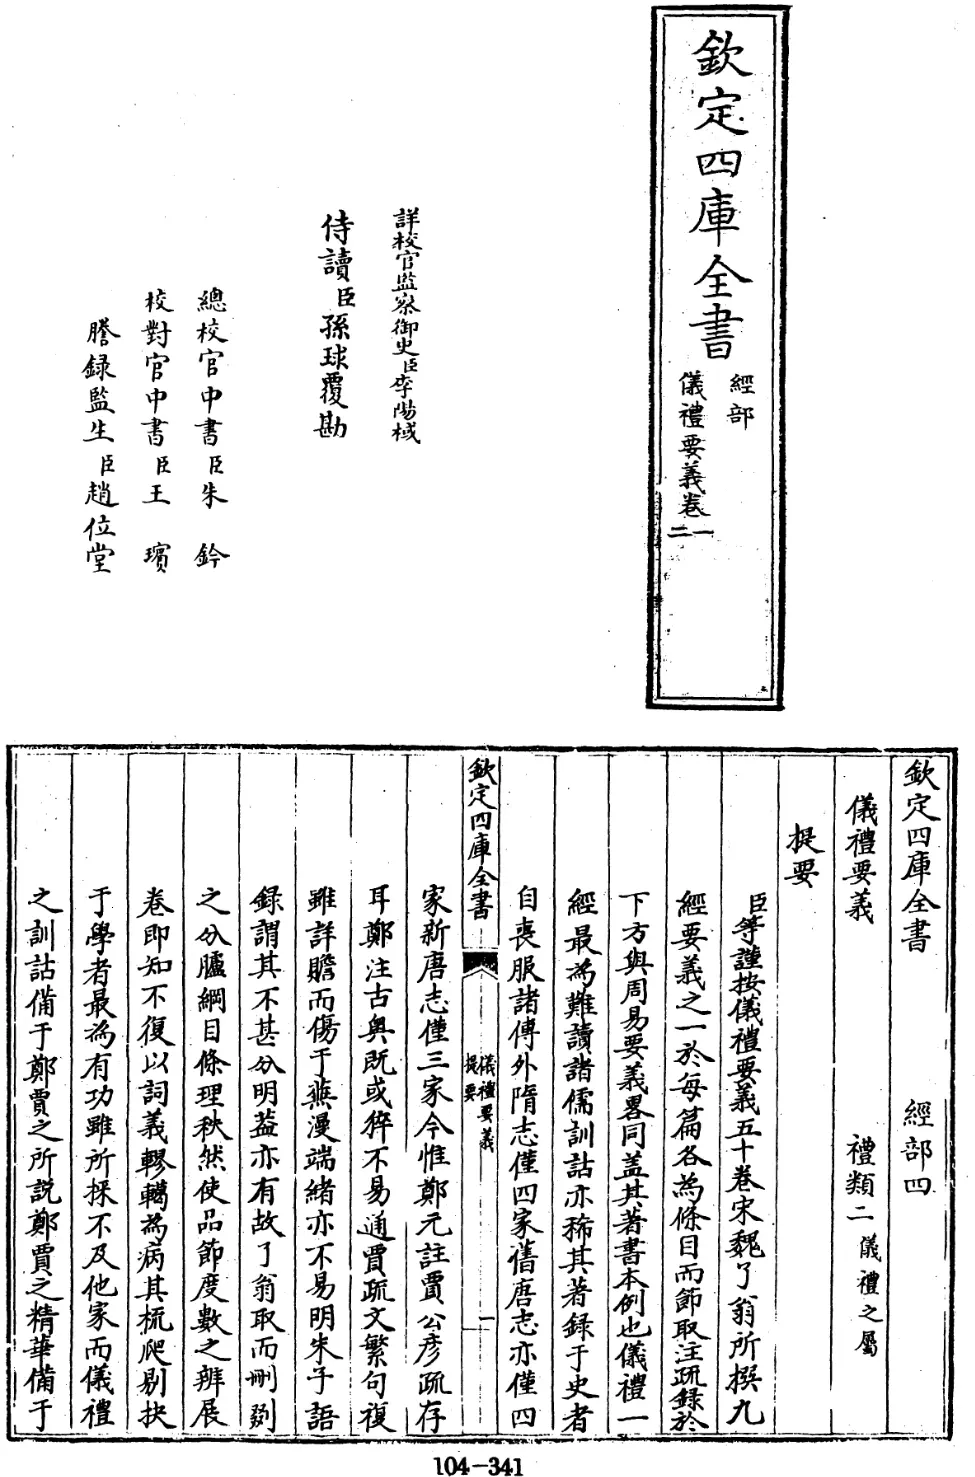 欽定四庫全書
經部
儀禮要義卷一
二
詳校官監察御史臣李陽棫
侍讀臣孫球覆勘
總校官中書臣朱鈐
校對官中書臣王璸
謄錄監生臣趙位堂
欽定四庫全書　經部四
儀禮要義　禮類二儀禮之屬
提要
臣等謹按儀禮要義五十卷宋魏了翁所撰九
經要義之一於每篇各為條目而節取注疏錄於
下方與周易要義畧同盖其著書本例也儀禮一
經最為難讀諸儒訓詁亦稀其著錄于史者
自喪服諸傳外隋志僅四家舊唐志亦僅四
欽定四庫全書
儀禮要義
提要
一
家新唐志僅三家今惟鄭元註賈公彥疏存
耳鄭注古奥既或猝不易通賈疏文繁句複
雖詳贍而傷于蕪漫端緒亦不易明朱子語
錄謂其不甚分明葢亦有故了翁取而刪剟
之分臚綱目條理秩然使品節度數之辨展
卷即知不復以詞義轇轕為病其梳爬剔抉
于學者最為有功雖所採不及他家而儀禮
之訓詁備于鄭賈之所説鄭賈之精華備于
104-341